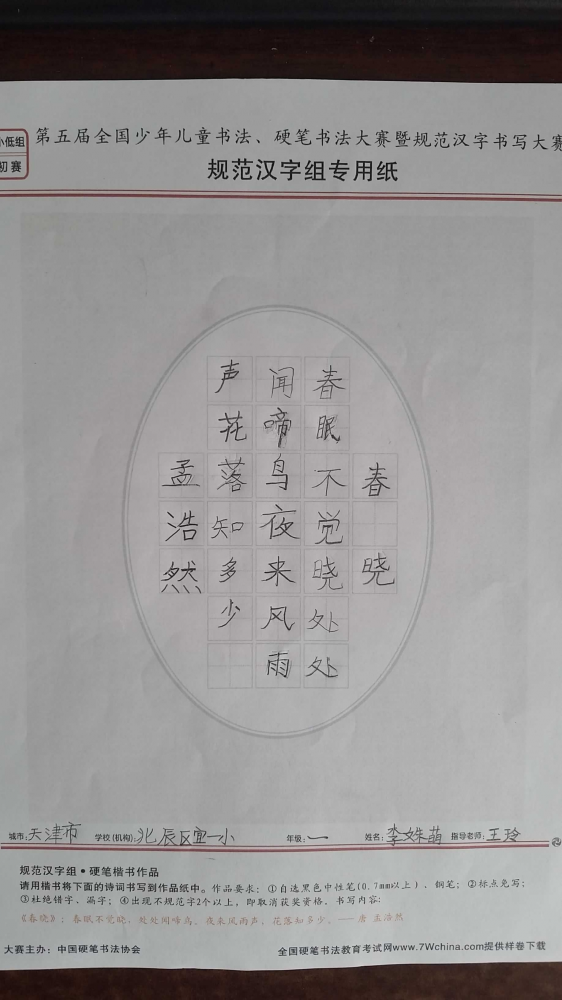 小低组
初赛
第五届全国少年儿童书法、硬笔书法大赛暨规范汉字书写大赛
规范汉字组专用纸
春晓
春眠不觉晓处处
闻啼鸟夜来风雨
声花落知多少
孟浩然
城市:天津市 学校(机构):北辰区宜一小 年级:一 姓名:李姝萌 指导老师:王玲
规范汉字组·硬笔楷书作品
请用楷书将下面的诗词书写到作品纸中。作品要求:①自选黑色中性笔(0.7mm以上)、钢笔;②标点免写;
③杜绝错字、漏字;④出现不规范字2个以上,即取消获奖资格。书写内容:
《春晓》:春眠不觉晓,处处闻啼鸟。夜来风雨声,花落知多少。——唐 孟浩然
大赛主办:中国硬笔书法协会 全国硬笔书法教育考试网www.7Wchina.com提供样卷下载